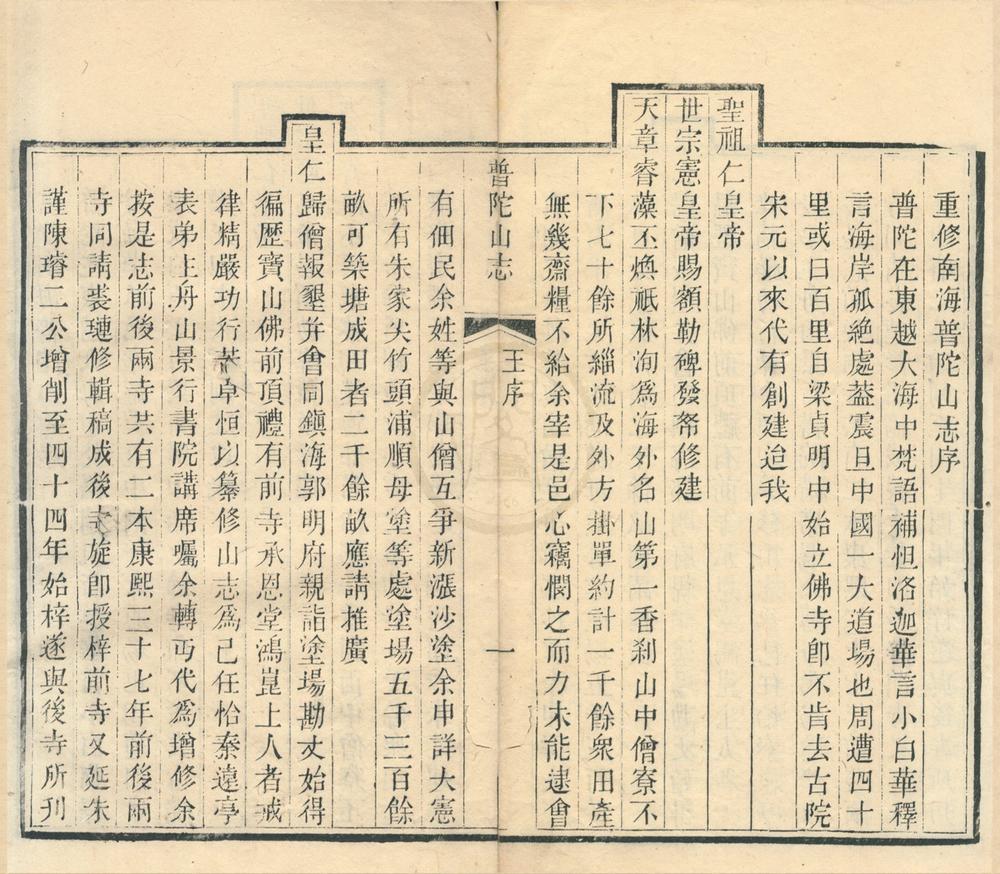 重修南海普陀山志序
普陀在東越大海中梵語補怛洛迦華言小白華釋
言海岸孤絕處葢震旦中國一大道場也周遭四十
里或曰百里自梁貞明中始立佛寺卽不肯去古院
宋元以來代有創建迨我
聖祖仁皇帝
世宗憲皇帝賜額勒碑發帑修建
天章睿藻丕煥祇林洵爲海外名山第一香刹山中僧寮不
下七十餘所緇流及外方掛單約計一千餘衆田產
無幾齋糧不給余宰是邑心竊憫之而力未能逮會
普陀山志
王序
一
有佃民余姓等與山僧互爭新漲沙塗余申詳大憲
所有朱家尖竹頭浦順母塗等處塗場五千三百餘
畝可築塘成田者二千餘畝應請推廣
皇仁歸僧報墾幷會同鎭海郭明府親詣塗場勘丈始得
徧歷寶山佛前頂禮有前寺承恩堂鴻崑上人者戒
律精嚴功行卓恒以纂修山志爲己任恰秦遠亭
表弟主舟山景行書院講席囑余轉丐代爲增修余
按是志前後兩寺共有二本康熙三十七年前後兩
寺同請裘璉修輯稿成後寺旋卽授梓前寺又延朱
謹陳璿二公增削至四十四年始梓遂與後寺所刊